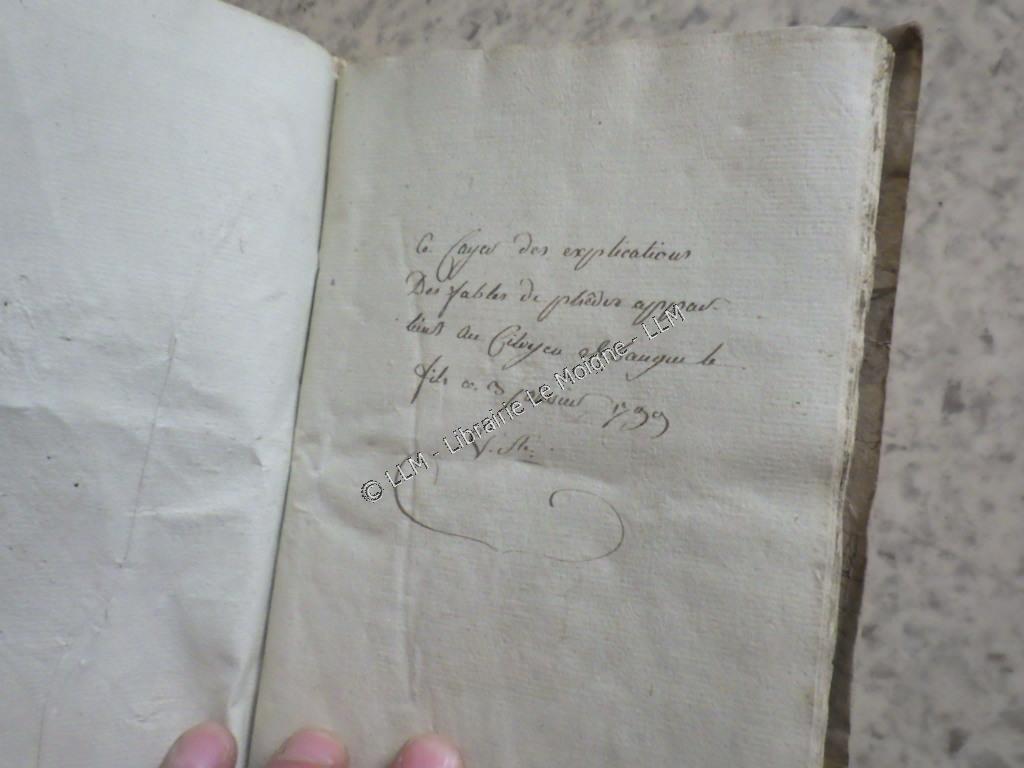 Ce Cayer des explications
Des fables de phedre appar-
tient au Citoyen le
fils ce 3 1799
V. St.
© LLM - Librairie Le Moigne - LLM